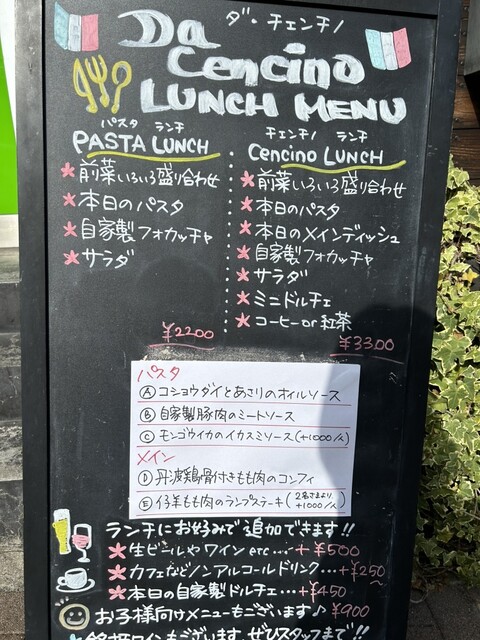 ダ・チェンチノ
Da
Cencino
LUNCH MENU
パスタ ランチ
PASTA LUNCH
★前菜いろいろ盛り合わせ
★本日のパスタ
★自家製フォカッチャ
★サラダ
¥2200
チェンチノ ランチ
Cencino LUNCH
★前菜いろいろ盛り合わせ
★本日のパスタ
★本日のメインディッシュ
★自家製フォカッチャ
★サラダ
★ミニドルチェ
★コーヒーor紅茶
¥3300
パスタ
Ⓐコショウダイとあさりのオイルソース
Ⓑ自家製豚肉のミートソース
Ⓒモンゴウイカのイカスミソース(+1000/人)
メイン
Ⓓ丹波鶏骨付きもも肉のコンフィ
Ⓔ仔羊もも肉のランプステーキ(2名さまより +1000/人)
ランチにお好みで追加できます!!
★生ビールやワイン etc…+¥500
★カフェなどノンアルコールドリンク…+¥250
★本日の自家製ドルチェ…+¥450
お子様向けメニューもございます♪¥900
ワインもございます。ぜひスタッフまで!!